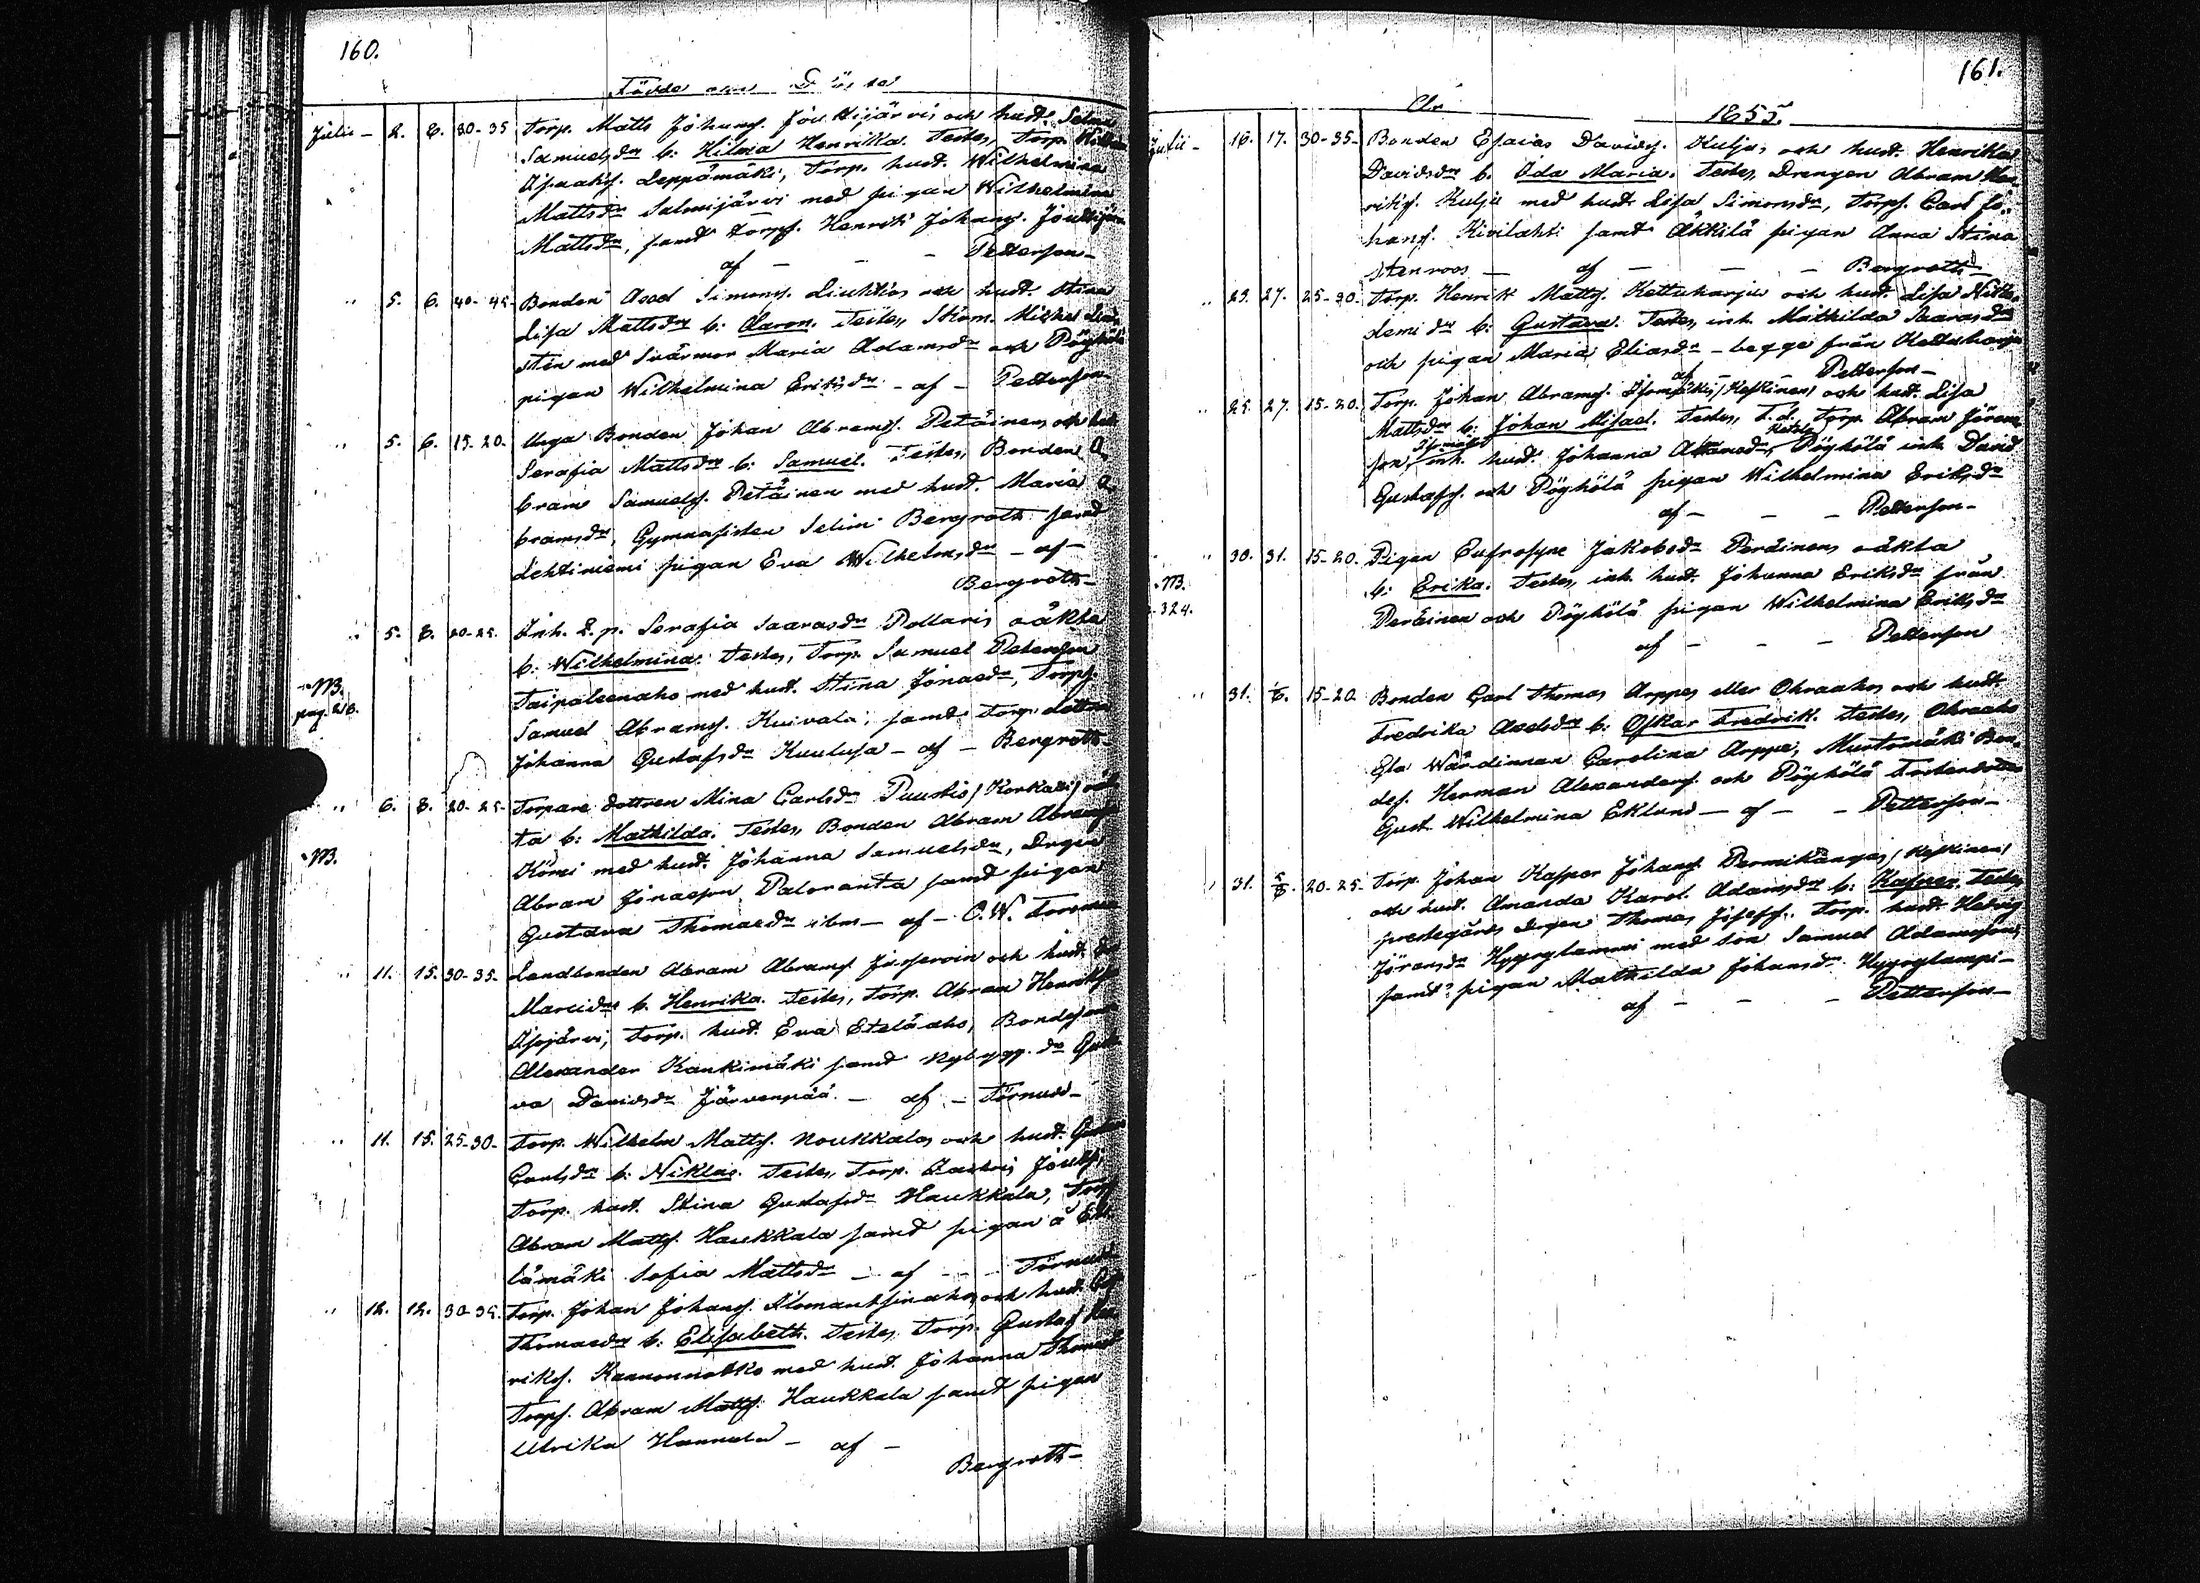 160.
Födde och Döpte
Julii - 2. 8. 30-35 Torp. Matts Johansf. Joutsijärvi och hust. Selma
Samuelsdr b: Hilma Henrika. Testes, Torp. Wilhelm
Isaaksf. Leppämäki, Torp. hust. Wilhelmina
Mattsdr Salmijärvi med pigan Wilhelmina
Mattsdr, samt Torpf. Henrik Johansf. Joutsijärvi
af - - - Petterson-
" 5. 6. 40-45- Bonden Axel Simonsf. Liukko och hust. Stina
Lisa Mattsdr b: Aaron. Testes, Skom. Michel
stén med Svärmor Maria Adamsdr och Pöyhölä
pigan Wilhelmina Eriksdr - af - Petterson
" 5. 6. 15-20. Unga Bonden Johan Abramsf. Petäinen, och hust.
Serafia Mattsdr b: Samuel. Testes, Bonden A-
bram Samuelsf. Petäinen med hust. Maria A-
bramsdr, Gymnasisten Selim Bergroth samt
Lehtiniemi pigan Eva Wilhelmsdr - af -
Bergroth-
" 5. 8. 20-25. Inh. E. p. Serafia Saarasdr Pollari, oäkta
b: Wilhelmina. Testes, Torp. Samuel Peterson
Taipaleenaho med hust. Stina Jonasdr, Torpf.
Samuel Abramsf. Kuivala, samt Torp. dottren
Johanna Gustafsdr Kuulusa - af - Bergroth-
NB.
pag. 218.
" 6. 8. 20-25- Torpare dottren Mina Carlsdr Puustis / Korkatti / oäk
ta b: Mathilda. Testes, Bonden Abram Abramsf.
Kömi med hust. Johanna Samuelsdr, Drgen
Abram Jonasson Paloranta samt pigan
Gustava Thomasdr ibm - af - O. W. Forsman
NB.
" 11. 15. 30-35- Landbonden Abram Abramsf. och hust.
Marcidr b. Henrika. Testes, Torp. Abram Henriksf.
Isojärvi, Torp. hust. Eva Eteläaho, Bondesonen
Alexander Kankimäki samt Nybygg. dr Gusta
va Davidsdr Järvenpää. - af - Törnudd-
" 11. 15. 25-30- Torp. Wilhelm Mattsf. Noukkala, och hust. Gustava
Carlsdr b: Niklas. Testes, Torp. Zachris Joutsi,
Torp. hust. Stina Gustafsdr Haukkala, Torpf.
Abram Mattsf. Haukkala samt pigan å
lämäki Sofia Mattsdr - af - - Törnudd
" 12. 12. 30-35. Torp. Johan Johansf. Ilomantsinaho, och hust.
Thomasdr b: Elisabeth. Testes, Torp. Gustaf Hen
riksf. Kannonnotko med hust. Johanna Thomasdr
Torpf. Abram Mattsf. Haukkala samt pigan
Ulrika Hannula - af -
Bergroth-
161.
År 1855.
Julii - 16. 17. 30-35- Bonden Esaias Davidsf. Kulju, och hust. Henrika
Davidsdr b. Ida Maria. Testes, Drengen Abram Hen
riksf. Kulju med hust. Lisa Simonsdr, Torpf. Carl Jo-
hansf. Kivilahti samt Äkkilä pigan Anna Stina
Stenroos - af - - - Bergroth-
" 23. 27. 25-30. Torp. Henrik Mattsf. Kettukarju och hust. Lisa Niko-
demidr b: Gustava. Testes, inh. Mathilda Saarasdr
och pigan Maria Eliasdr - begge från Kettuharju
af - Petterson-
" 25. 27. 15-20. Torp. Johan Abramsf. Isomäki, / Keskinen / och hust. Lisa
Mattsdr b: Johan Misael. Testes, t. d. Torp. Abram Göran
son, Isomäki inh. hust. Johanna Adamsdr, Pöyhölä inh. David
Gustafsf. och Pöyhölä pigan Wilhelmina Eriksdr
af - - - Petterson-
" 30. 31. 15-20. Pigan Eufrosyne Jakobsdr Peräinen, oäkta
b: Erika. Testes, inh. hust. Johanna Eriksdr från
Peräinen och Pöyhölä pigan Wilhelmina Eriksdr
af - - - Petterson
NB.
324.
" 31. 1/8. 15-20 Bonden Carl Thomas Arppe, eller Ohraaho, och hust.
Fredrika Axelsdr b: Oskar Fredrik. Testes, Ohraaho
Gla Wärdinnan Carolina Arppe, Murtomäki Bon-
des. Herman Alexandersf. och Pöyhölä Fosterdotter
Gust. Wilhelmina Eklund - af - - Petterson-
" 31. 5/8. 20-25- Torp. Johan Kasper Johansf. Permikangas / Keskinen /
och hust. Amanda Karol. Adamsdr b: Kasper. Testes,
prestegårds drgen Thomas Josefsf. Torp. hust. Hedvig
Göransdr Hyyryslammi med son Samuel Adamsson,
samt pigan Mathilda Johansdr Hyyryslampi-
af - - - Petterson-